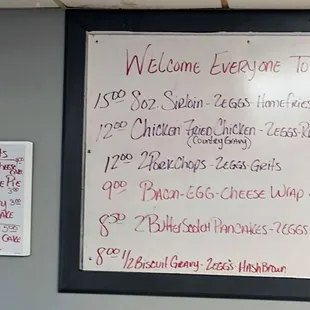 Welcome Everyone To
15⁰⁰ 8oz. Sirloin - 2EGGS - Homefries
12⁰⁰ Chicken Fried Chicken - 2EGGS - R
(Country Gravy)
12⁰⁰ 2 Pork Chops - 2EGGS - Grits
9⁰⁰ Bacon - EGG - Cheese Wrap
8⁵⁰ 2 ButterScotch Pancakes - 2EGGS
8⁰⁰ 1/2 Biscuit Gravy - 2EGG'S - HashBrown
Pie
3⁰⁰
3⁰⁰
AKE
5⁰⁰
CAKE